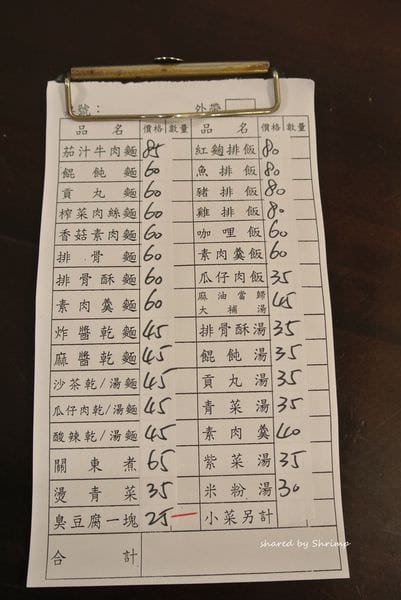 號: 外帶
品名 價格 數量 品名 價格 數量
茄汁牛肉麵 85 紅麴排飯 80
餛飩麵 60 魚排飯 80
貢丸麵 60 豬排飯 80
榨菜肉絲麵 60 雞排飯 80
香菇素肉麵 60 咖哩飯 60
排骨麵 60 素肉羹飯 60
排骨酥麵 60 瓜仔肉飯 35
素肉羹麵 60 麻油當歸大補湯 45
炸醬乾麵 45 排骨酥湯 35
麻醬乾麵 45 餛飩湯 35
沙茶乾/湯麵 45 貢丸湯 35
瓜仔肉乾/湯麵 45 青菜湯 35
酸辣乾/湯麵 45 素肉羹 40
關東煮 65 紫菜湯 35
燙青菜 35 米粉湯 30
臭豆腐一塊 25 小菜另計
合計
shared by Shrimp